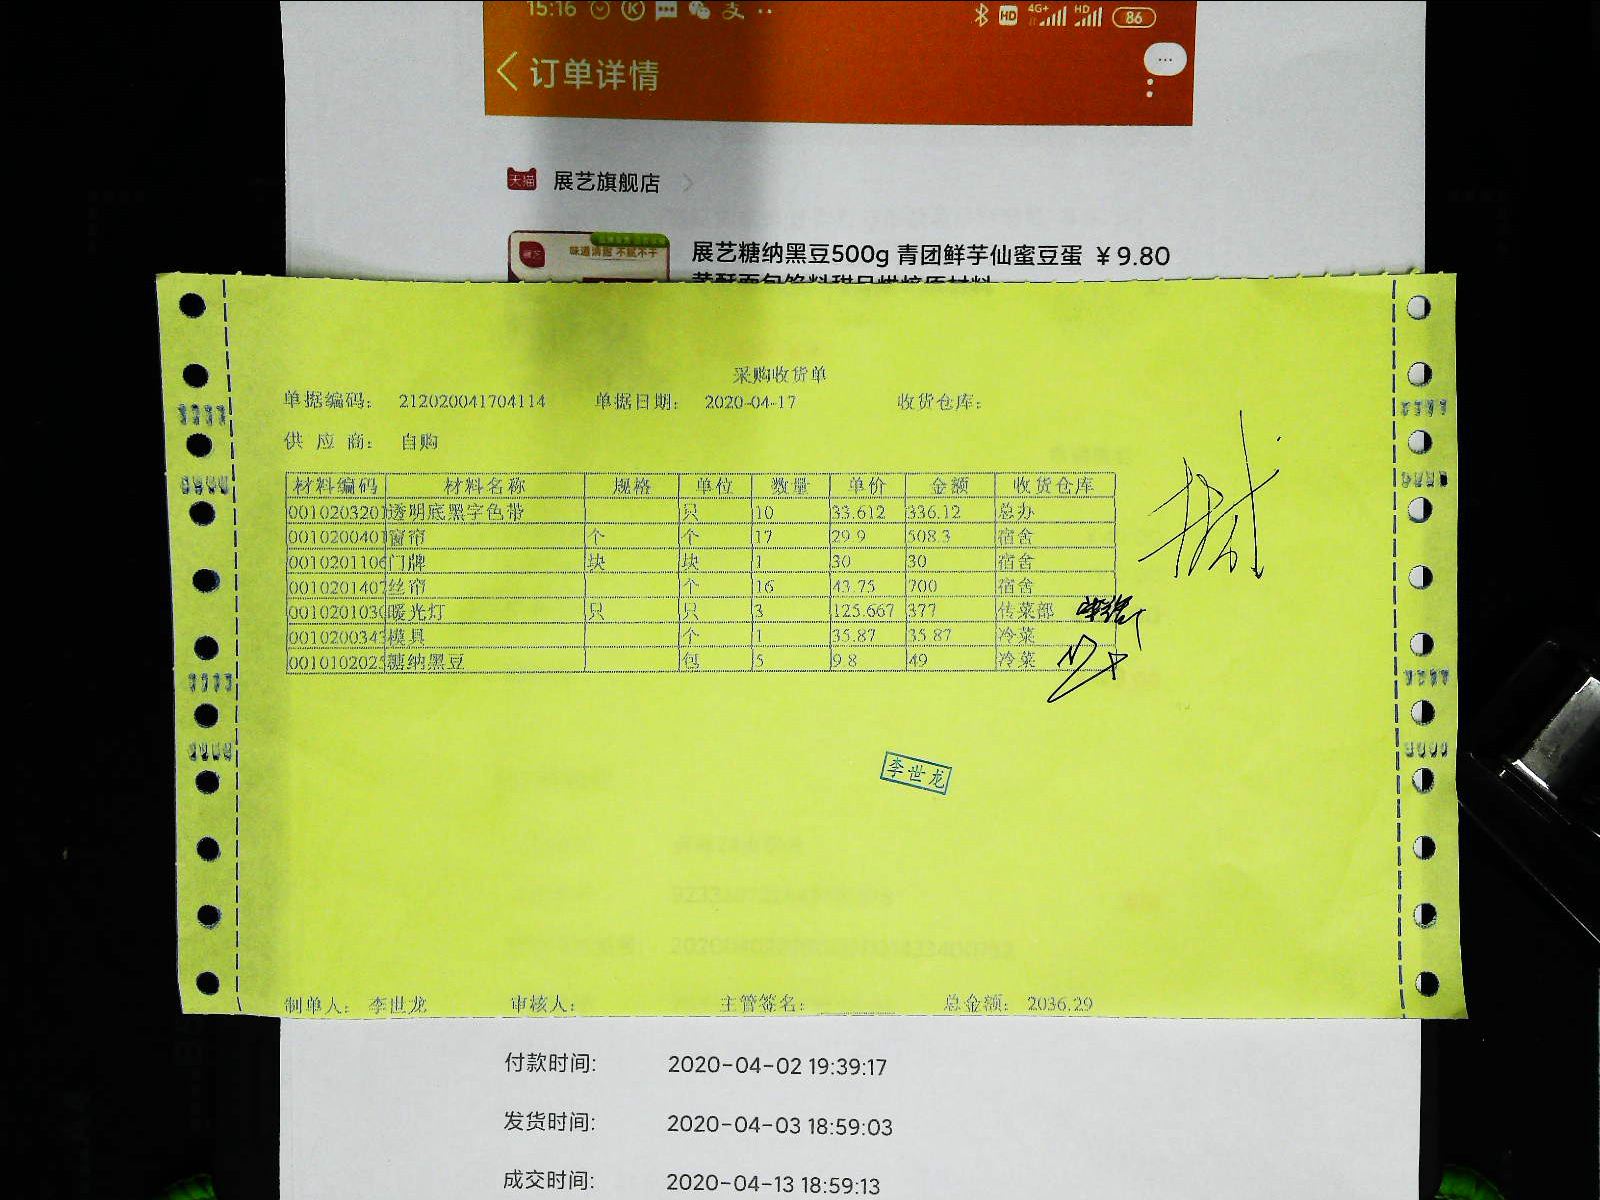 15:16 HD 4G+ HD 86
订单详情
天猫 展艺旗舰店
味道清甜 不腻不干
展艺糖纳黑豆500g 青团鲜芋仙蜜豆蛋 ￥9.80
采购收货单
单据编码: 212020041704114 单据日期: 2020-04-17 收货仓库:
供 应 商: 自购
材料编码 材料名称 规格 单位 数量 单价 金额 收货仓库
0010203201 透明底黑字色带 只 10 33.612 336.12 总办
0010200401 窗帘 个 个 17 29.9 508.3 宿舍
0010201106 门牌 块 块 1 30 30 宿舍
0010201407 丝帘 个 16 43.75 700 宿舍
0010201030 暖光灯 只 只 3 125.667 377 传菜部
0010200343 模具 个 1 35.87 35.87 冷菜
0010102025 糖纳黑豆 包 5 9.8 49 冷菜
李世龙
制单人: 李世龙 审核人: 主管签名: 总金额: 2036.29
付款时间: 2020-04-02 19:39:17
发货时间: 2020-04-03 18:59:03
成交时间: 2020-04-13 18:59:13